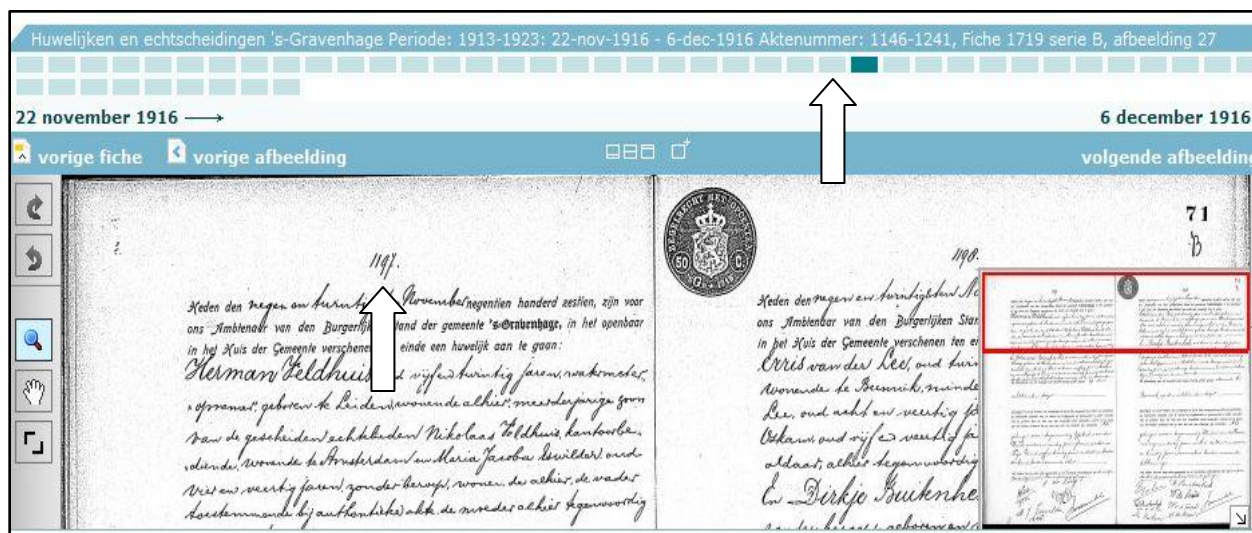 Huwelijken en echtscheidingen 's-Gravenhage Periode: 1913-1923: 22-nov-1916 - 6-dec-1916 Aktenummer: 1146-1241, Fiche 1719 serie B, afbeelding 27
22 november 1916
6 december 1916
vorige fiche
vorige afbeelding
volgende afbeelding
1197.
Heden den negen en November negentien honderd zestien, zijn voor
ons Ambtenaar van den Burgerlijk and der gemeente 's-Gravenhage, in het openbaar
in het Huis der Gemeente verschenen einde een huwelijk aan te gaan:
Herman Veldhuis vijf en twintig jaren, watermeter-
opnemer, geboren te Leiden, wonende alhier, meerderjarige zoon
van de gescheiden echtelieden Nikolaas Veldhuis, kantoorbe-
diende, wonende te Amsterdam en Maria Jacoba oud
vier en veertig jaren, zonder beroep, wonende alhier, de vader
toestemmende bij authentieke akte, de moeder alhier tegenwoordig
50 C.
71
B
1198.
Heden den negen en twintigsten
ons Ambtenaar van den Burgerlijken Stan
in het Huis der Gemeente verschenen ten e
van der Lee, oud
wonende te Bunnik, minde
Lee, oud acht en veertig
oud vijf en veertig ja
aldaar, alhier tegenwoordig
En Dirkje Buitenhe